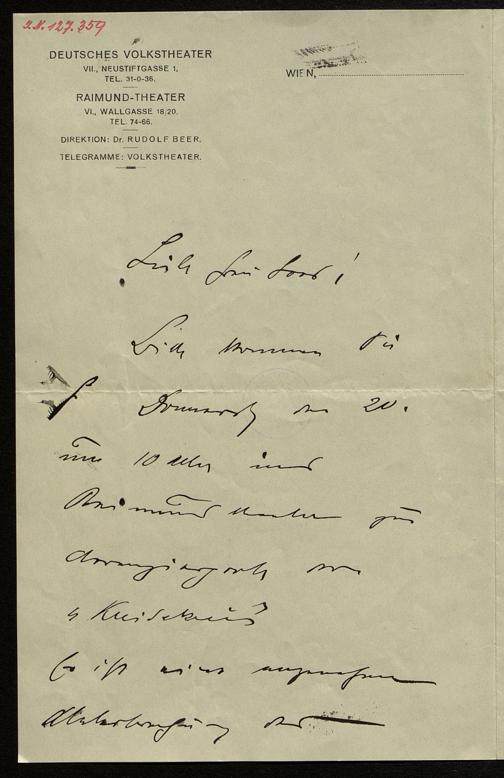 I.N. 127.359
DEUTSCHES VOLKSTHEATER
VII., NEUSTIFTGASSE 1,
TEL. 31-0-36.
RAIMUND-THEATER
VI., WALLGASSE 18/20.
TEL. 74-66.
DIREKTION: Dr. RUDOLF BEER.
TELEGRAMME: VOLKSTHEATER.
WIEN,
Frau
kommen Sie
Donnerstag den 20.
um 10 Uhr ins
Raimundtheater zur
Arrangierprobe von
„Kreidekreis"
Es ist eine